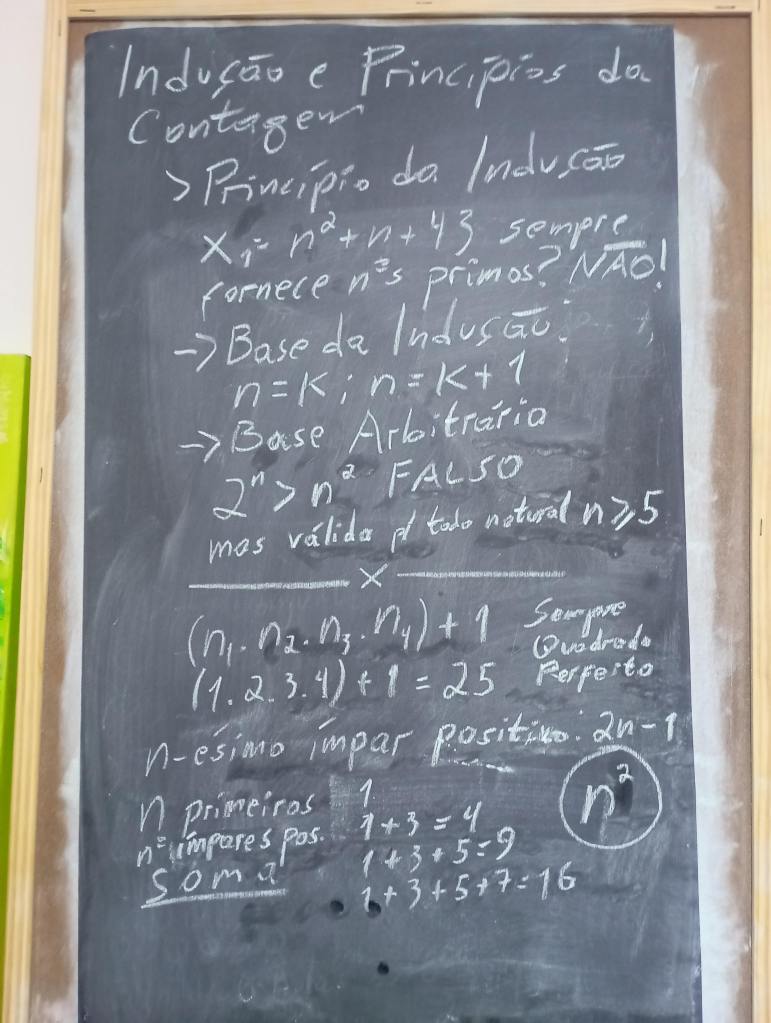 Indução e Princípios da
Contagem
> Princípio da Indução
X₁ = n² + n + 43 sempre
fornece nºs primos? NÃO!
→ Base da Indução:
n = K; n = K + 1
→ Base Arbitrária
2ⁿ > n² FALSO
mas válida p/ todo natural n ≥ 5
x
(n₁. n₂. n₃. n₄) + 1 Sempre Quadrado Perfeito
(1. 2. 3. 4) + 1 = 25
n-ésimo ímpar positivo: 2n - 1
n primeiros
nº ímpares pos.
soma
1
1 + 3 = 4
1 + 3 + 5 = 9
1 + 3 + 5 + 7 = 16
n²